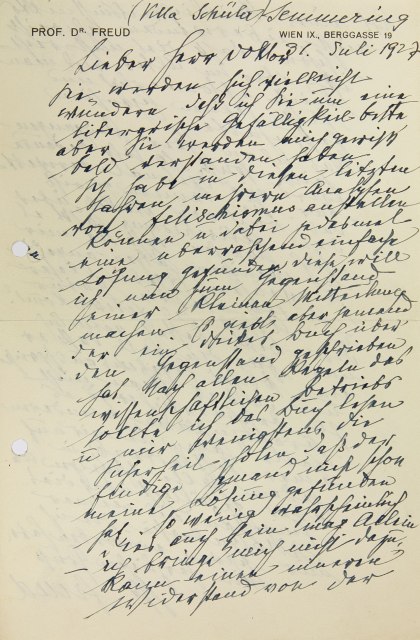 (Villa Schüler) Semmering
PROF. DR. FREUD
WIEN IX., BERGGASSE 19
31. Juli 1927
Lieber Herr Doktor
Sie werden sich vielleicht
wundern daß ich Sie um eine
literarische Gefälligkeit bitte
aber Sie werden mich gewiß
bald verstanden haben.
Ich habe in diesen letzten
Jahren mehrere Analysen
von Fetischismus anstellen
können u dabei jedesmal
eine überraschend einfache
Lösung gefunden, diese will
ich nun zum Gegenstand
einer kleinen Mitteilung
machen. Es giebt aber jemand
der ein Buch über
den Gegenstand geschrieben
hat. Nach allen Regeln des
wissenschaftlichen Betriebs
sollte ich das Buch lesen
u mir wenigstens die
Sicherheit holen daß der
findige Mann nicht schon
meine Lösung gefunden
hat, so wenig wahrscheinlich
dies auch sein mag. Allein
– ich bringe mich nicht dazu,
kann einen inneren
Widerstand von der